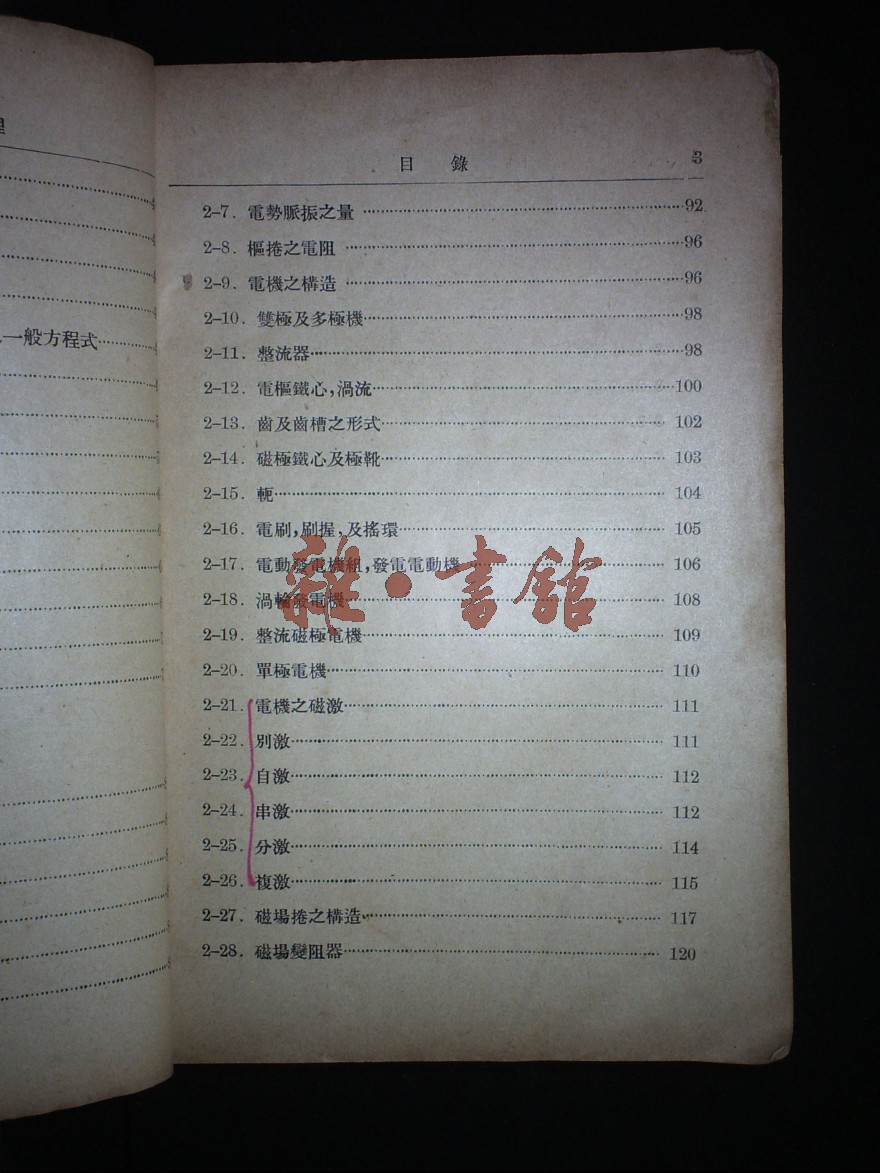 理
一般方程式
目 錄 3
2-7. 電勢脈振之量 92
2-8. 樞捲之電阻 96
2-9. 電機之構造 96
2-10. 雙極及多極機 98
2-11. 整流器 98
2-12. 電樞鐵心,渦流 100
2-13. 齒及齒槽之形式 102
2-14. 磁極鐵心及極靴 103
2-15. 軛 104
2-16. 電刷,刷握,及搖環 105
2-17. 電動發電機組,發電電動機 106
2-18. 渦輪發電機 108
2-19. 整流磁極電機 109
2-20. 單極電機 110
2-21. 電機之磁激 111
2-22. 別激 111
2-23. 自激 112
2-24. 串激 112
2-25. 分激 114
2-26. 複激 115
2-27. 磁場捲之構造 117
2-28. 磁場變阻器 120
雜·書館